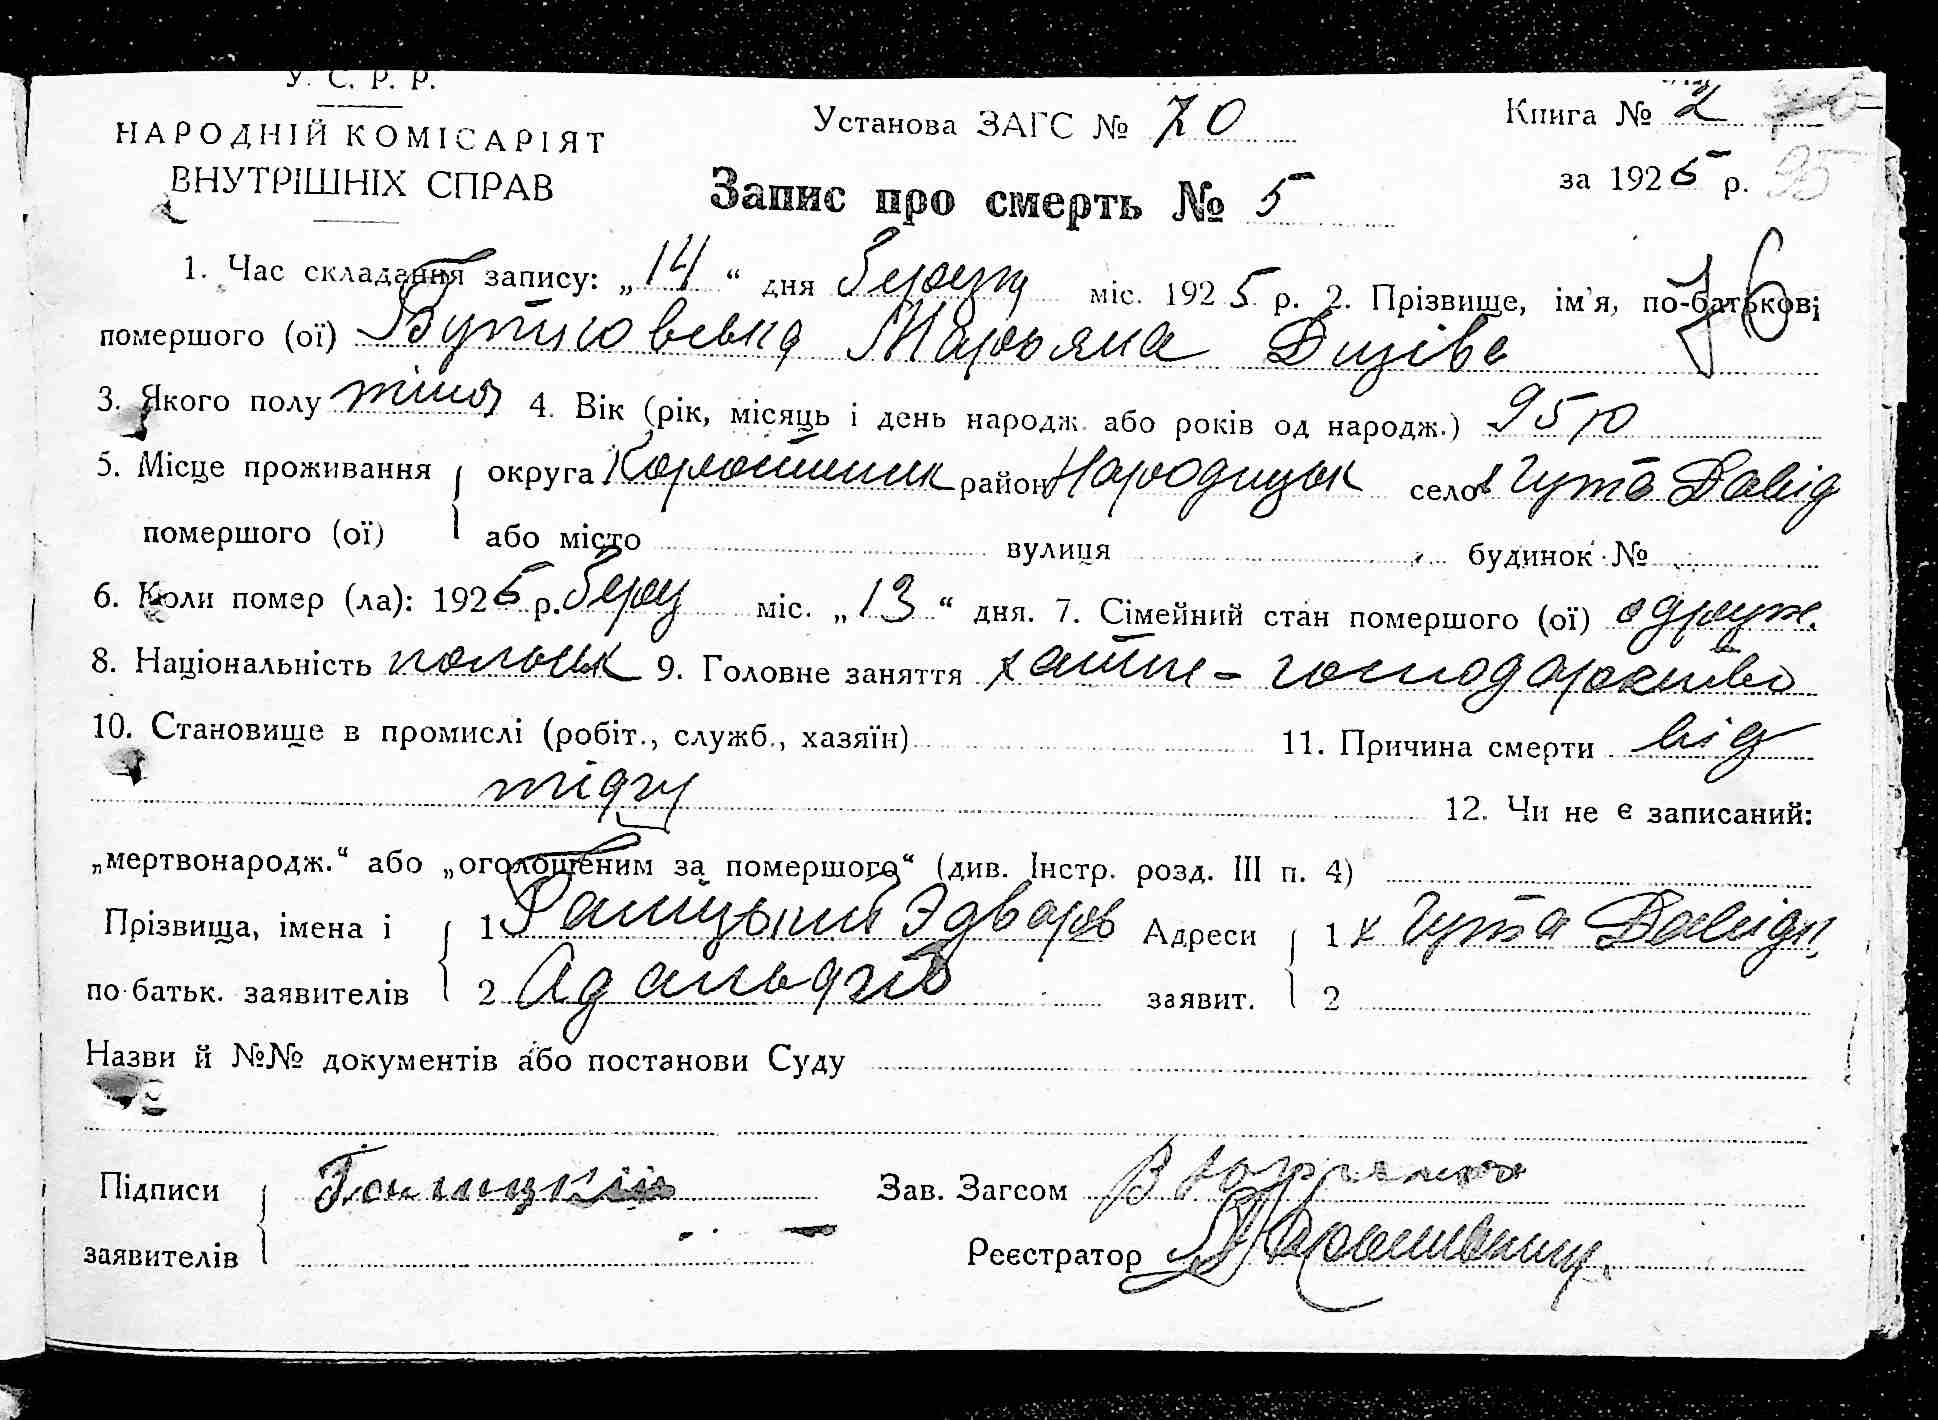 У. С. Р. Р.
НАРОДНІЙ КОМІСАРІЯТ
ВНУТРІШНІХ СПРАВ
Установа ЗАГС № 70
Книга № 2
за 1925 р. 95
Запис про смерть № 5
76
1. Час складання запису: „14“ дня Березня міс. 1925 р. 2. Прізвище, ім'я, по-батькові
помершого (ої) Марьяна
3. Якого полу жіноч 4. Вік (рік, місяць і день народж. або років од народж.) 95 ю
5. Місце проживання округа Коростенськ район Народицьк село х Гута Давид
помершого (ої) або місто вулиця будинок №
6. Коли помер (ла): 1925 р. Берез міс. „13“ дня. 7. Сімейний стан помершого (ої) одруж.
8. Національність польськ 9. Головне заняття хатне-господарство
10. Становище в промислі (робіт., служб., хазяїн) 11. Причина смерти від
12. Чи не є записаний:
„мертвонародж.“ або „оголошеним за помершого“ (див. Інстр. розд. III п. 4)
Прізвища, імена і 1 Едвард Адреси 1 х Гута Давид
по-батьк. заявителів 2 заявит. 2
Назви й №№ документів або постанови Суду
Підписи Зав. Загсом
заявителів Реєстратор